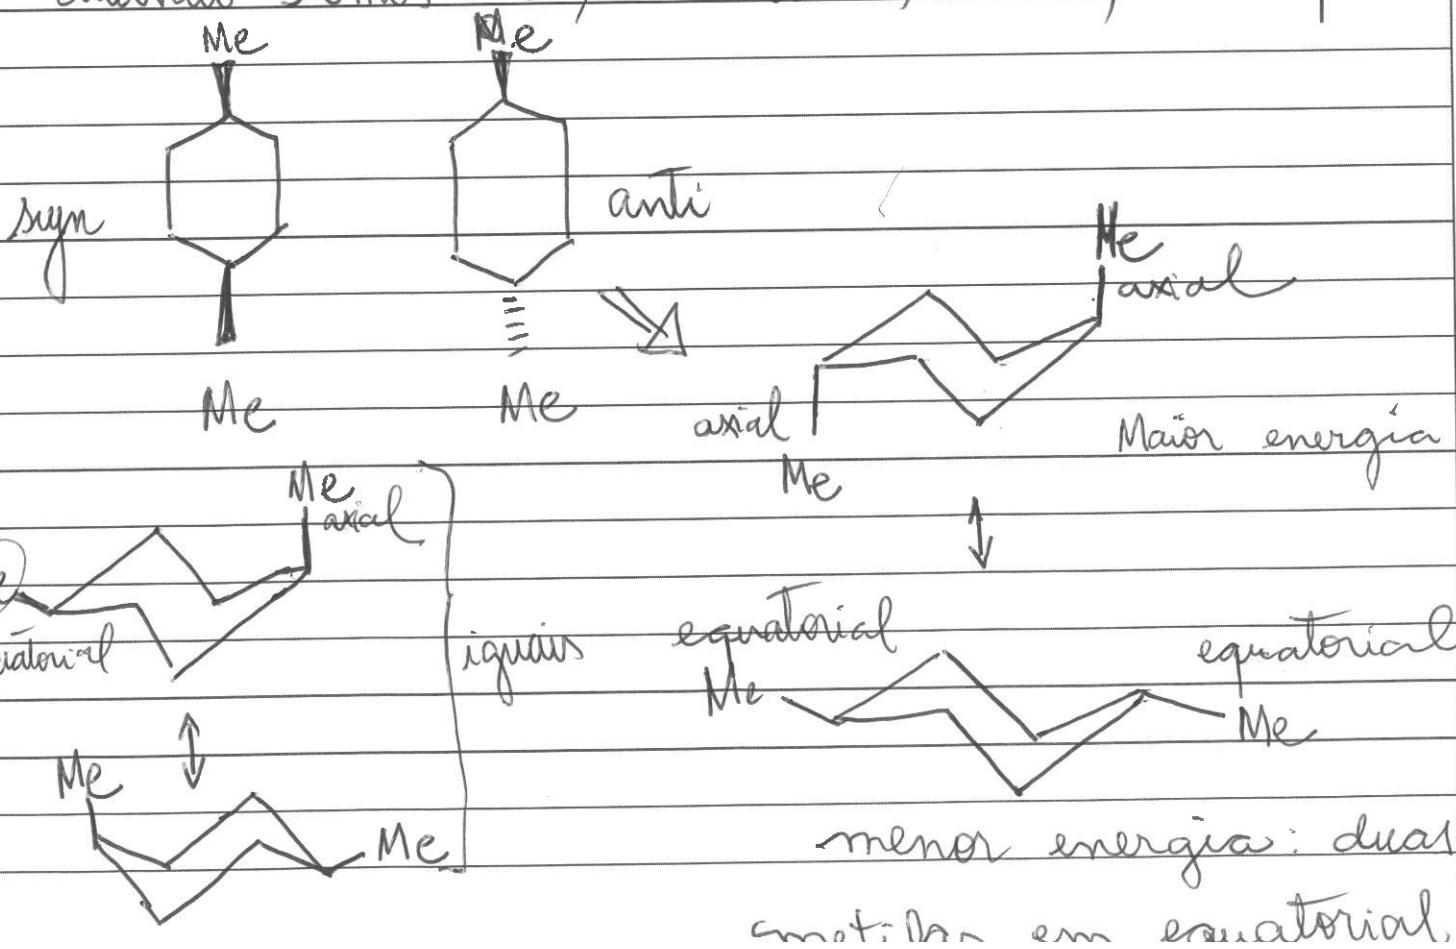 Me
Me
syn
anti
Me
axial
Me
Me
axial
Me
Maior energia
Me
axial
equatorial
Me
iguais
equatorial
Me
Me
Me
menor energia: duas
metilas em equatorial